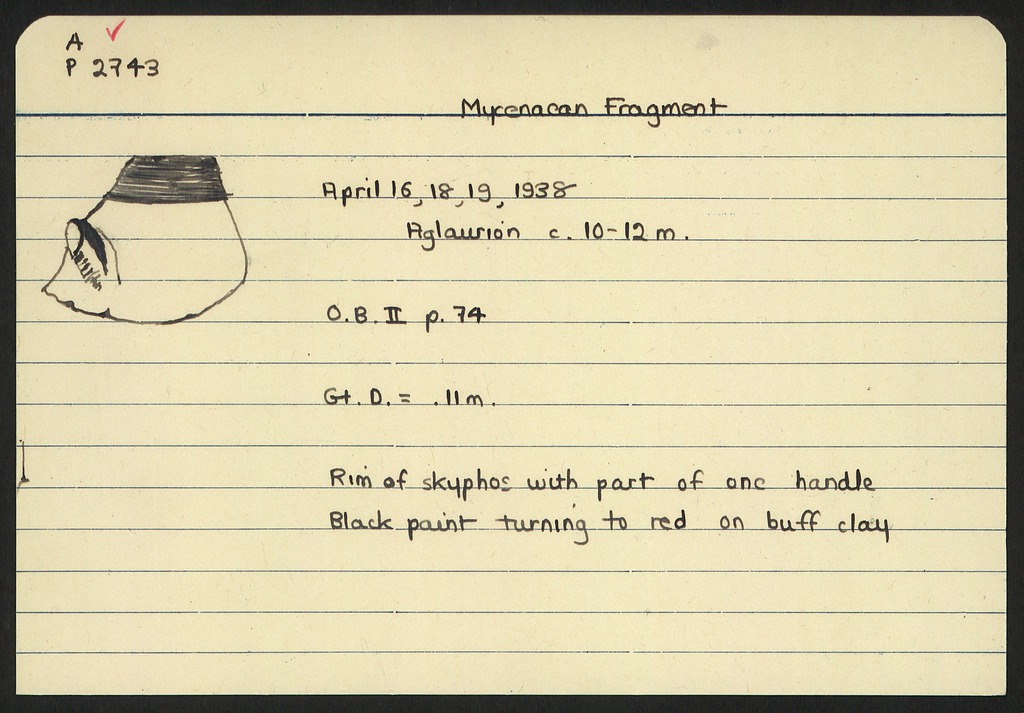 A ✓
P 2743
Mycenaean Fragment
April 16, 18, 19, 1938
Aglaurion c. 10-12 m.
O.B. II p. 74
Gt. D. = .11 m.
Rim of skyphos with part of one handle
Black paint turning to red on buff clay